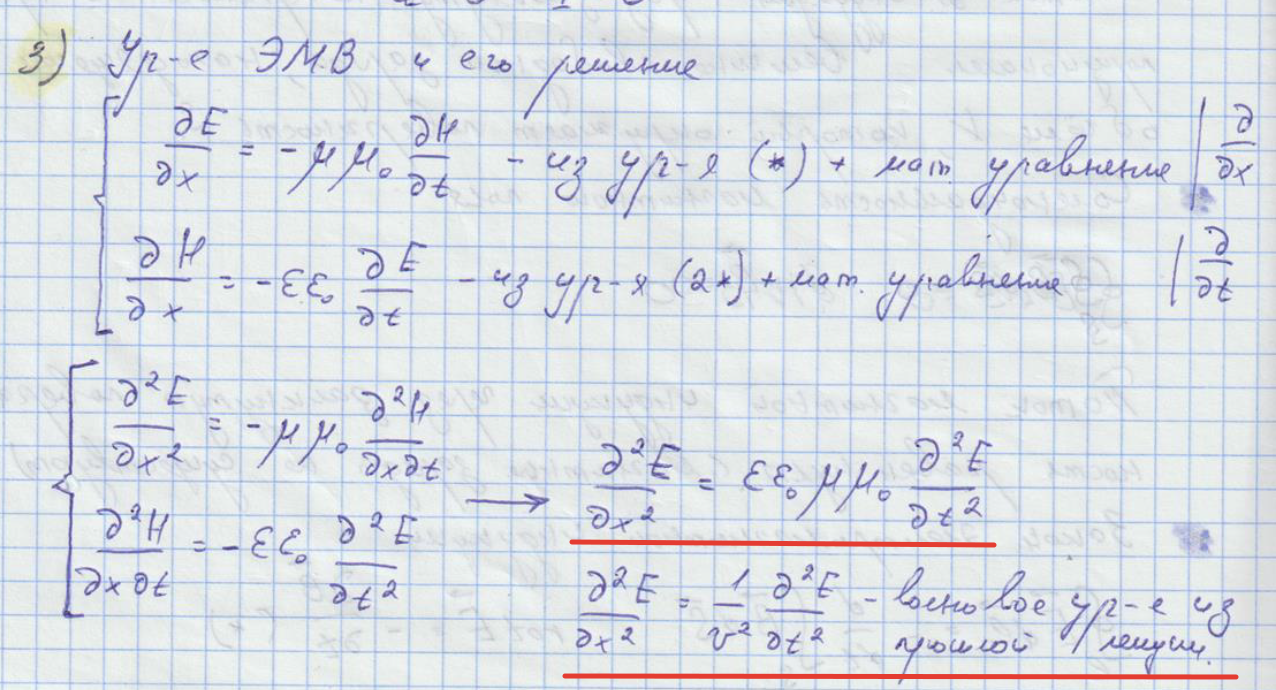 3) Ур-е ЭМВ и его решение
∂E/∂x = -μμ₀ ∂H/∂t - из ур-я (*) + мат. уравнение | ∂/∂x
∂H/∂x = -εε₀ ∂E/∂t - из ур-я (2*) + мат. уравнение | ∂/∂t
∂²E/∂x² = -μμ₀ ∂²H/∂x∂t
∂²H/∂x∂t = -εε₀ ∂²E/∂t²
→ ∂²E/∂x² = εε₀μμ₀ ∂²E/∂t²
∂²E/∂x² = 1/v² ∂²E/∂t² - волновое ур-е из
прошлой лекции.